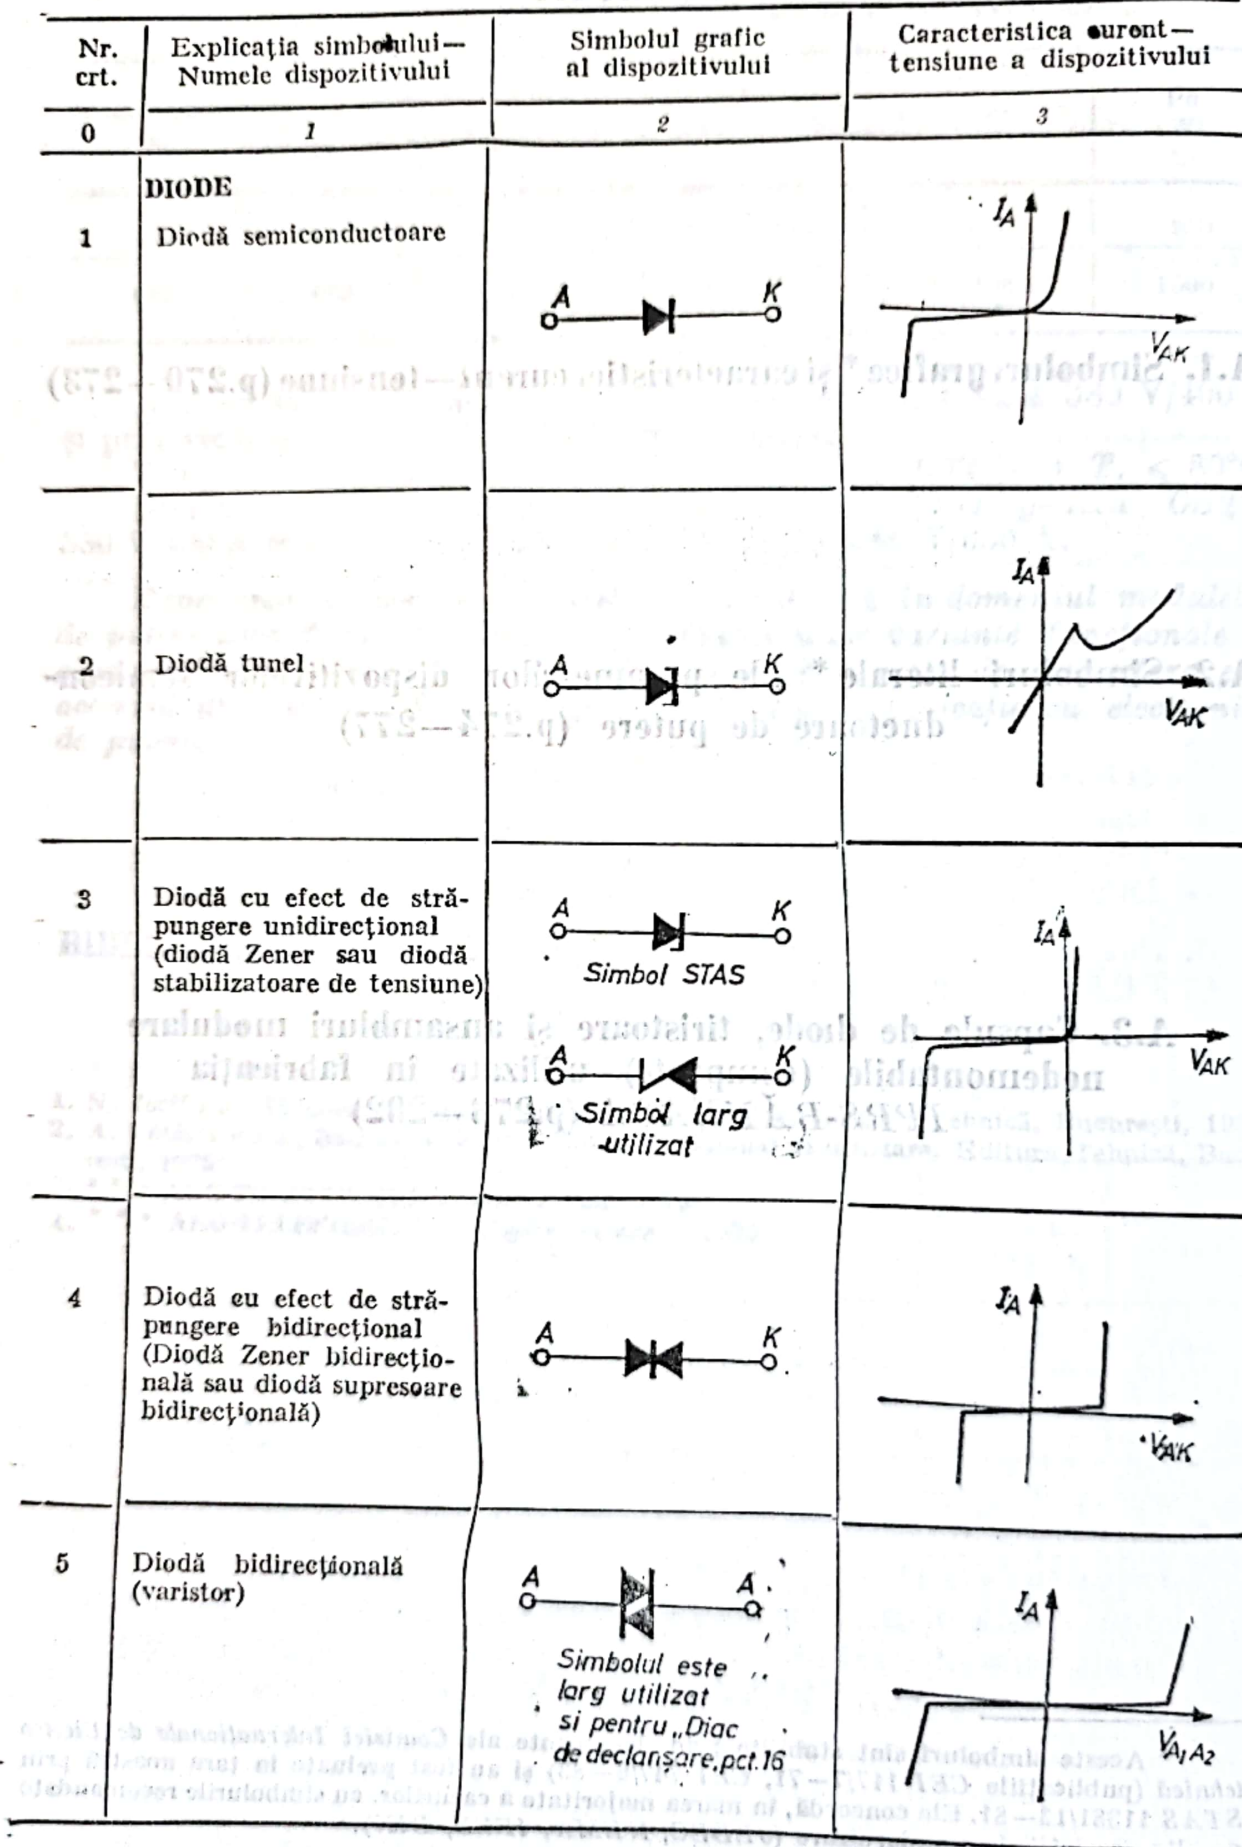 Nr. crt.
Explicația simbolului—
Numele dispozitivului
Simbolul grafic
al dispozitivului
Caracteristica curent—
tensiune a dispozitivului
0
1
2
3
DIODE
1
Diodă semiconductoare
A
K
I_A
V_AK
2
Diodă tunel
A
K
I_A
V_AK
3
Diodă cu efect de stră-
pungere unidirecțional
(diodă Zener sau diodă
stabilizatoare de tensiune)
A
K
Simbol STAS
A
K
Simbol larg
utilizat
I_A
V_AK
4
Diodă cu efect de stră-
pungere bidirecțional
(Diodă Zener bidirecțio-
nală sau diodă supresoare
bidirecțională)
A
K
I_A
V_AK
5
Diodă bidirecțională
(varistor)
A
A
Simbolul este
larg utilizat
si pentru „Diac
de declansare, pct.16
I_A
V_A1A2